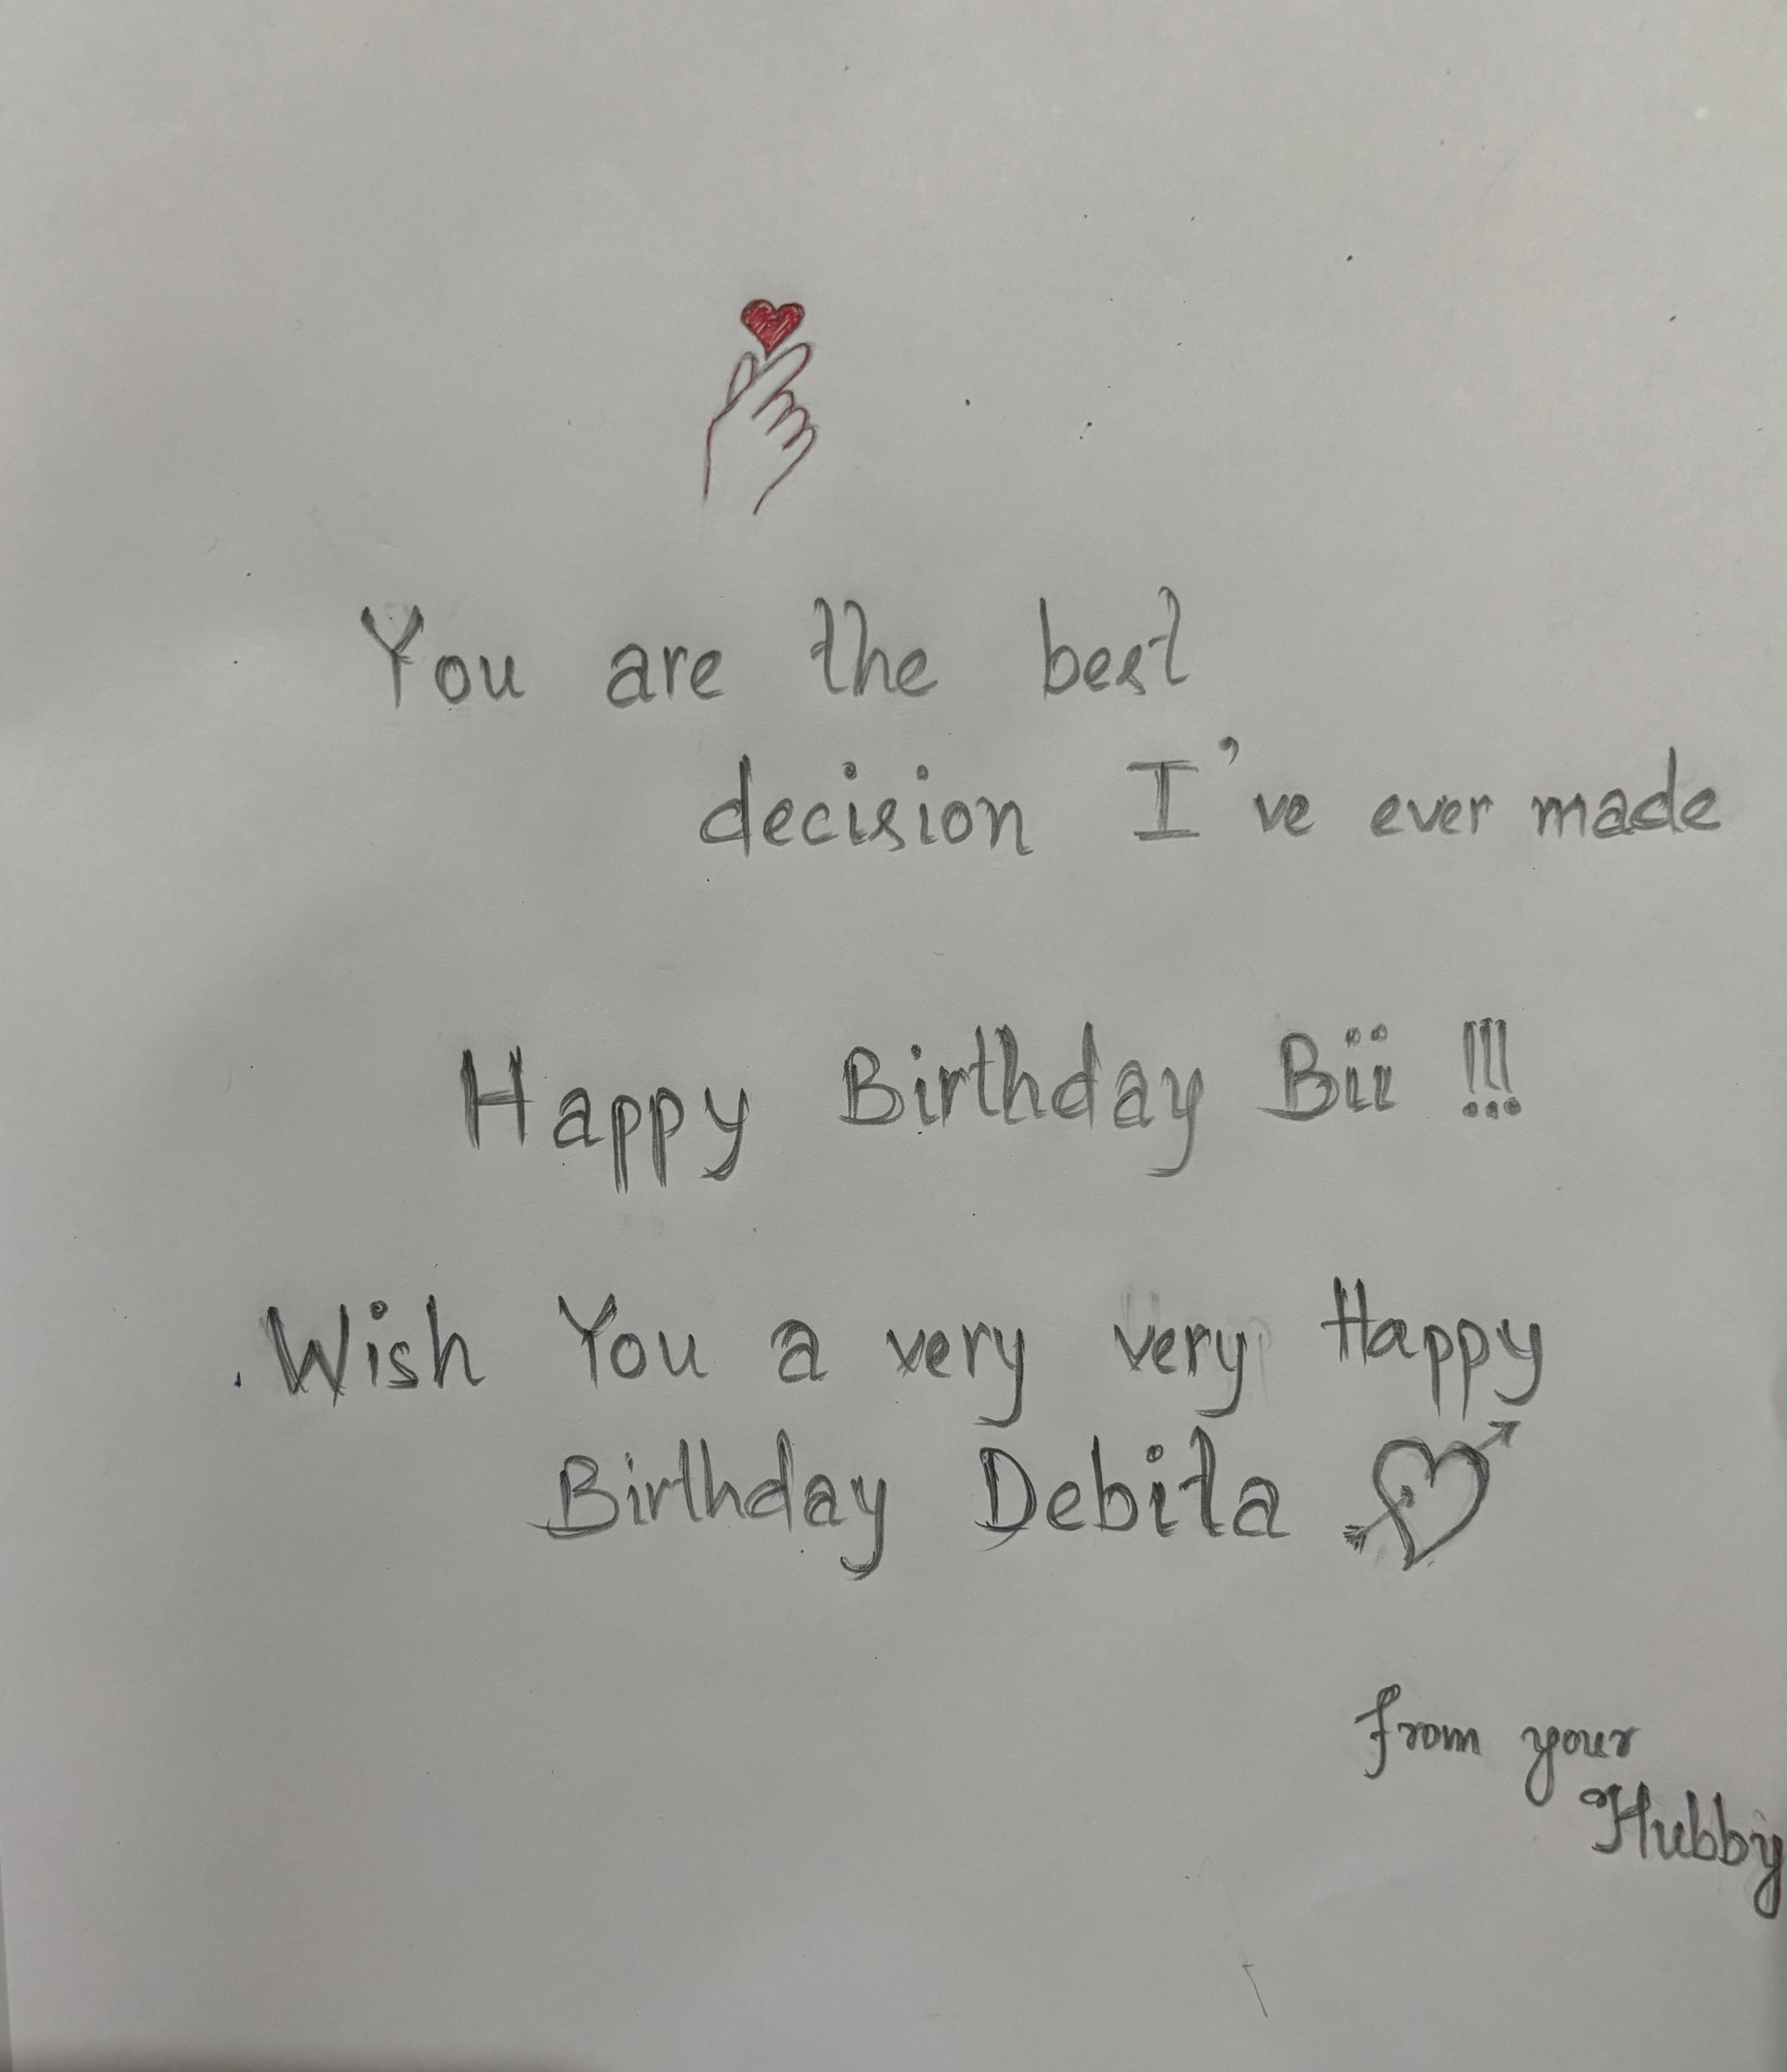 You are the best
decision I've ever made
Happy Birthday Bii !!!
Wish You a very very Happy
Birthday Debita
from your
Hubby